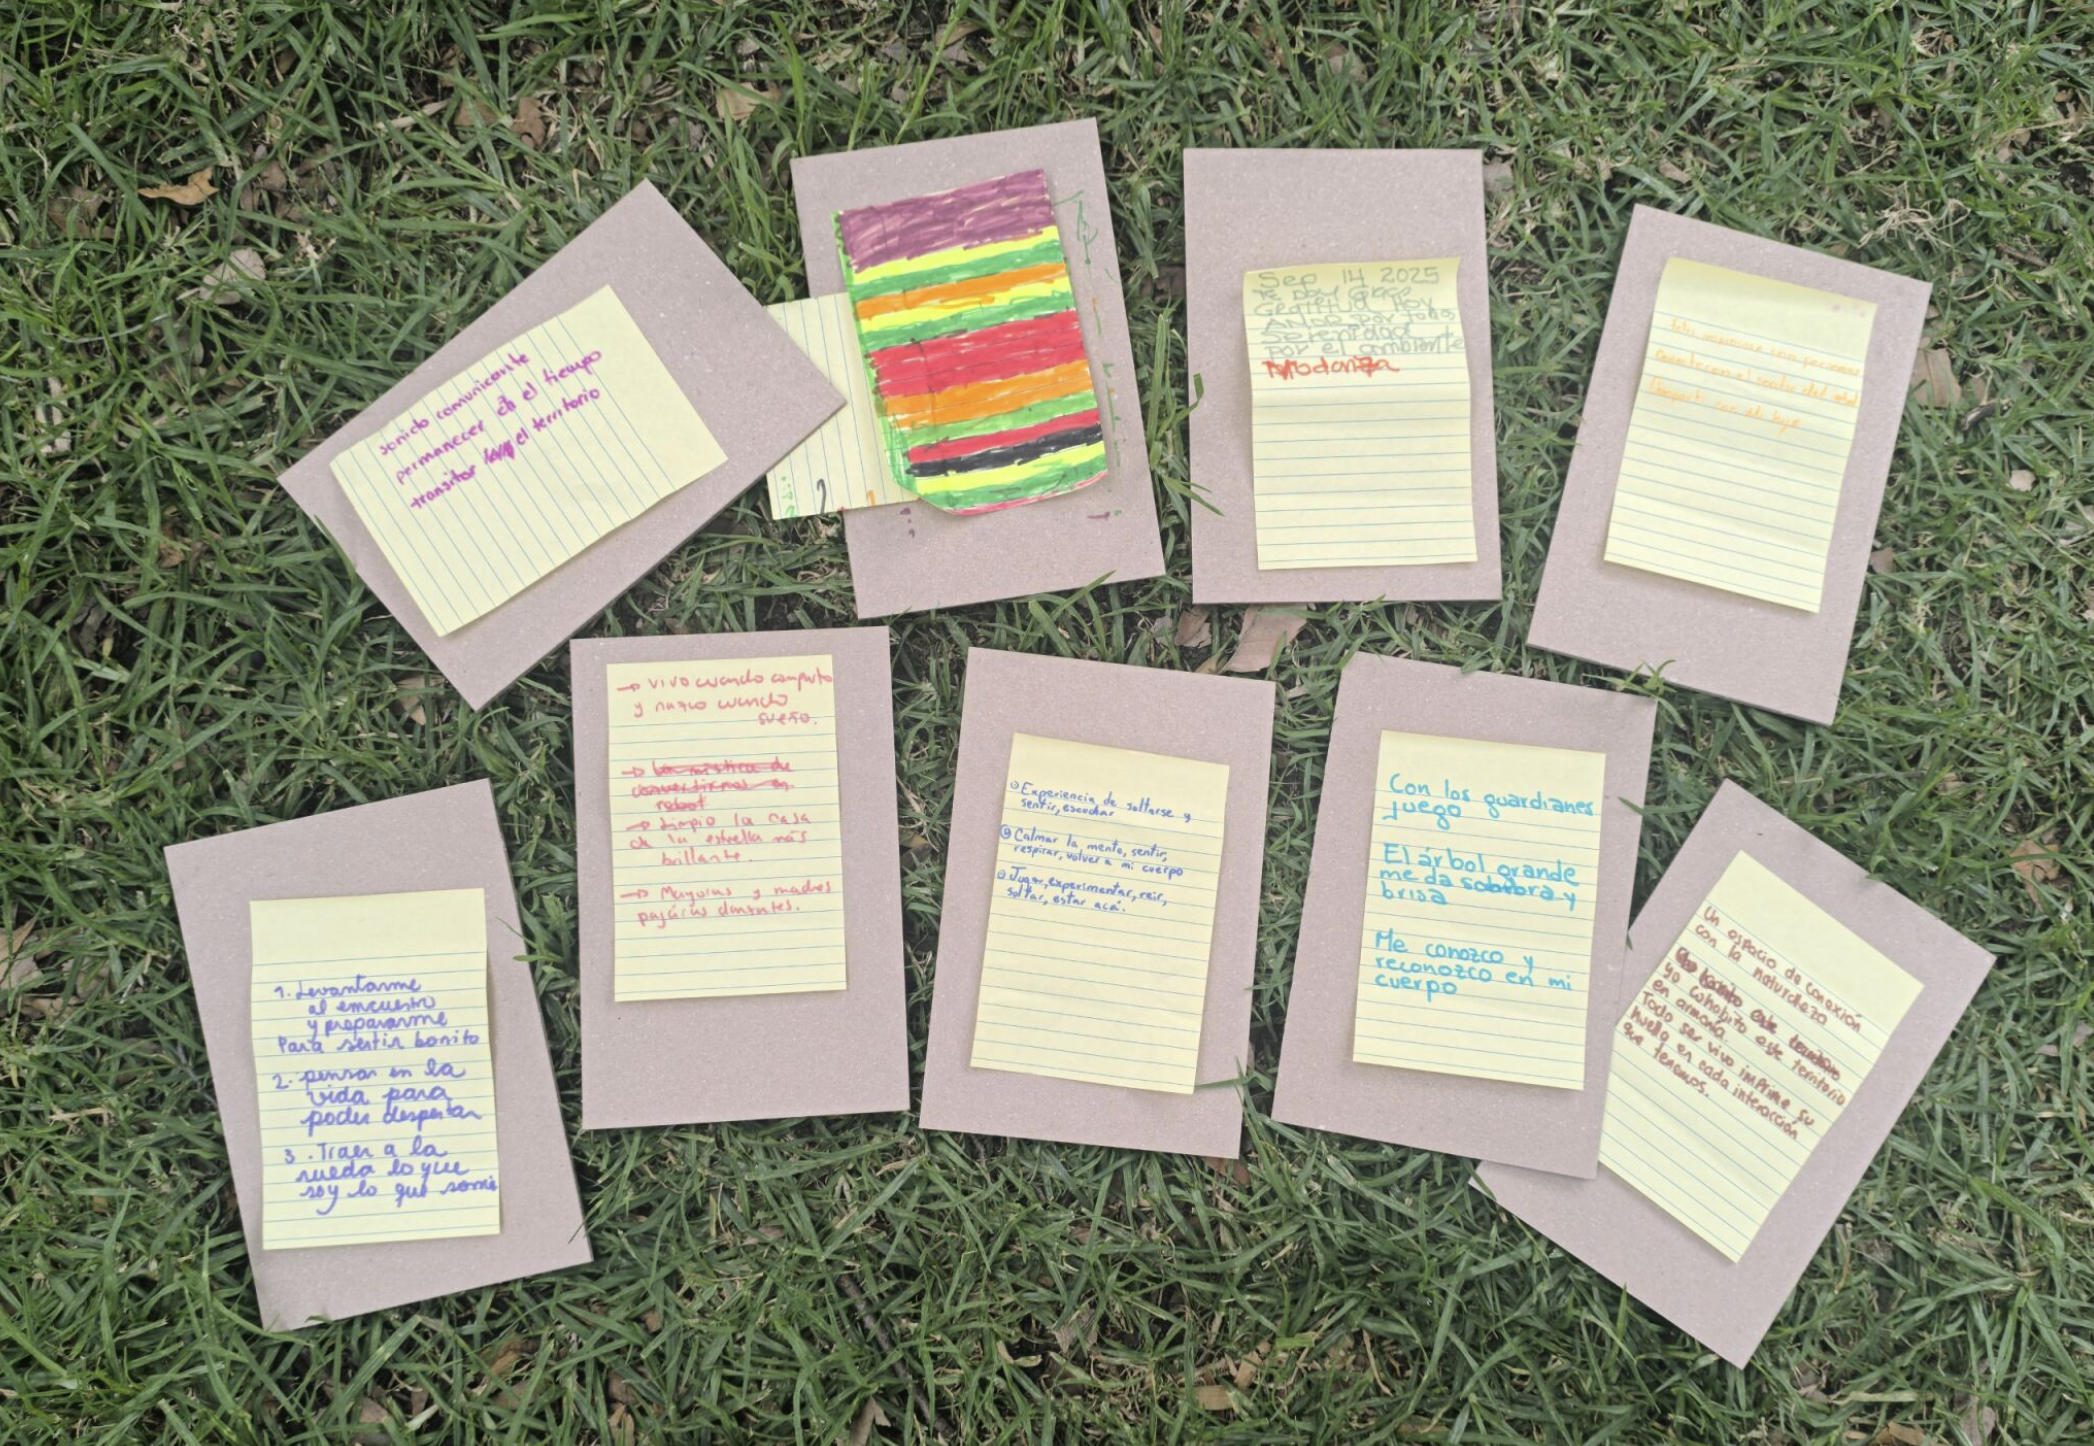 sonido comunicante
permanecer en el tiempo
transitar el territorio
Sep 14 2025
Gratitud Hoy
Serenidad
Por el ambiente
Modanza
compartí con mi hijo
1. Levantarme
al encuentro
y prepararme
Para sentir bonito
2. pensar en la
vida para
poder despertar
3. Traer a la
rueda lo que
soy lo que somos
→ vivo cuando comparto
y nazco cuando
sueño.
→ La mística de
convertirnos en
robot
→ Limpio la casa
de la estrella más
brillante.
→ Mayoras y madres
pajáras danzantes.
Experiencia de soltarse y
sentir, escuchar
Calmar la mente, sentir,
respirar, volver a mi cuerpo
Jugar, experimentar, reir,
soltar, estar acá.
Con los guardianes
juego
El árbol grande
me da sombra y
brisa
Me conozco y
reconozco en mi
cuerpo
Un espacio de conexión
con la naturaleza
yo cohabito este territorio
en armonía.
Todo ser vivo imprime su
huella en cada interacción
que tenemos.